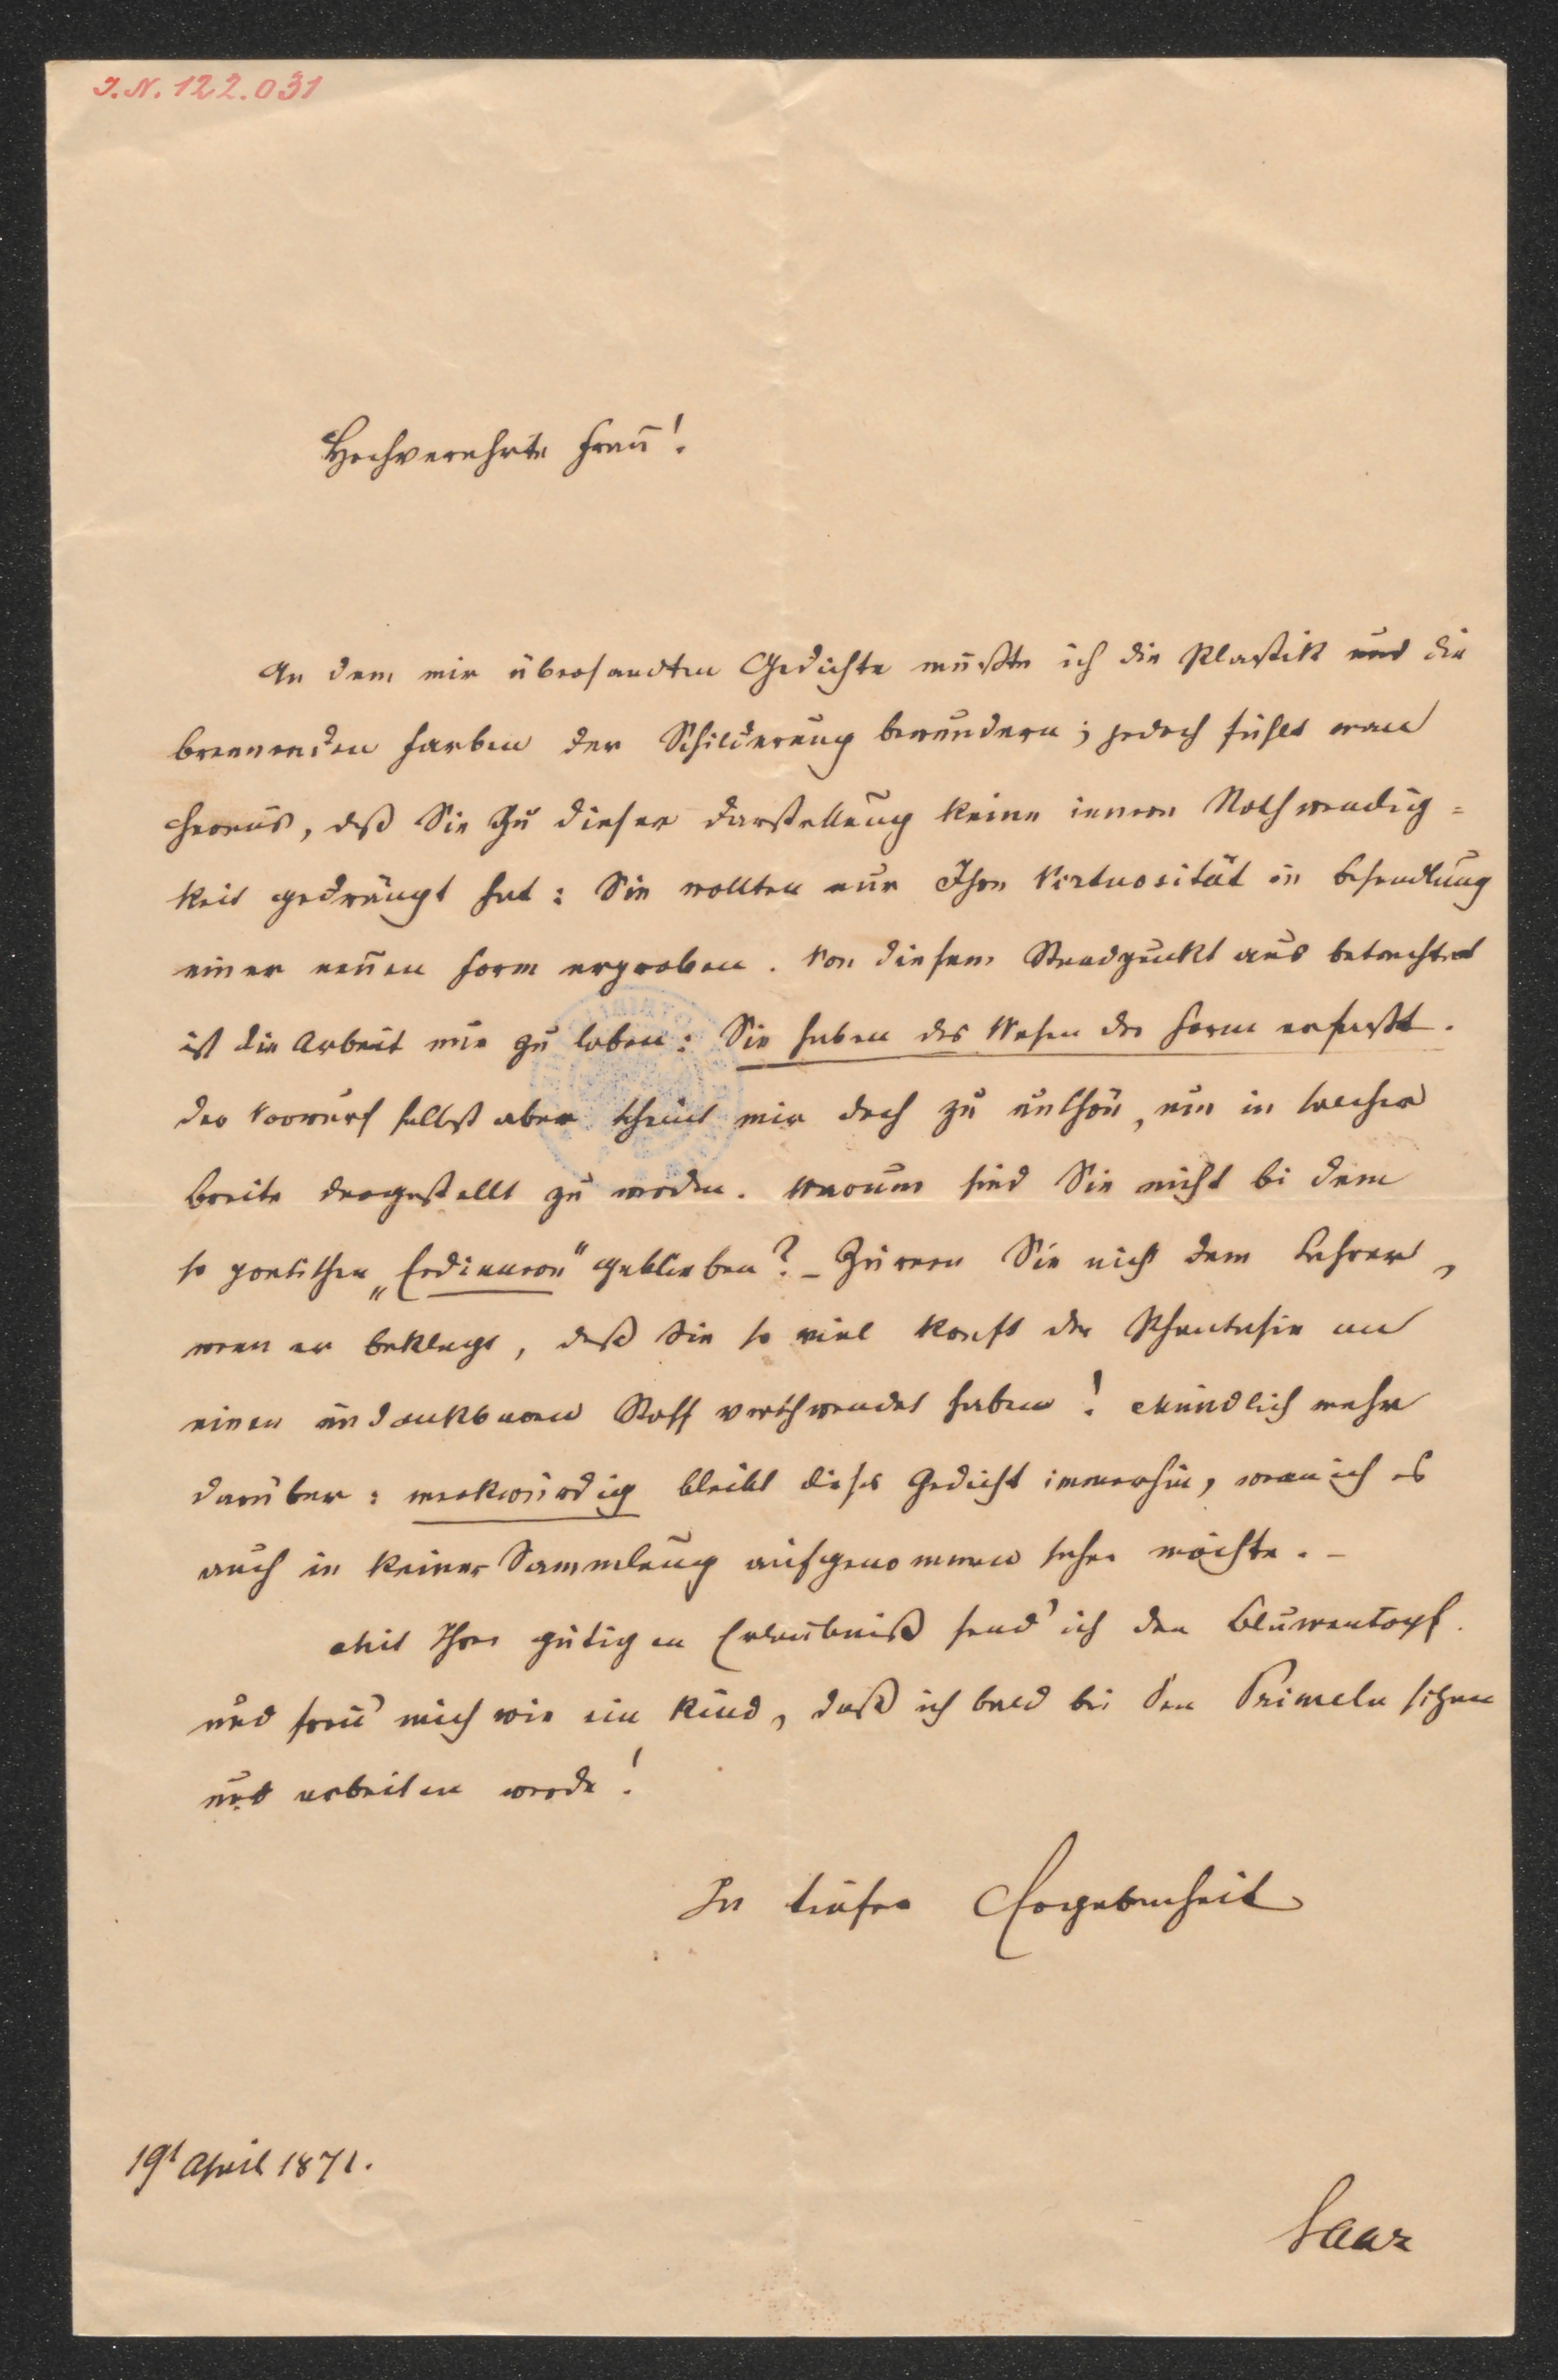 I.N. 122.031
Hochverehrte Frau!
An dem mir übersandten Gedichte mußte ich die Plastik und die
brennenden Farben der Schilderung bewundern; jedoch fühlt man
heraus, daß Sie zu dieser Darstellung keine innere Nothwendig=
keit gedrängt hat: Sie wollten nur Ihre Virtuosität in Behandlung
einer neuen Form erproben. Von diesem Standpunkt aus betrachtet
ist die Arbeit nur zu loben: Sie haben das Wesen der Form erfaßt.
Der Vorwurf selbst aber scheint mir doch zu unschön, um in solcher
Breite dargestellt zu werden. Warum sind Sie nicht bei dem
so poetischen geblieben? – Zürnen Sie nicht dem Lehrer,
wenn er beklagt, daß Sie so viel Kraft der Phantasie an
einen undankbaren Stoff verschwendet haben! Mündlich mehr
darüber: merkwürdig bleibt dieses Gedicht immerhin, wenn ich es
auch in keiner Sammlung aufgenommen sehen möchte. –
Mit Ihrer gütigen Erlaubniß send' ich den Blumentopf
und freu' mich wie ein Kind, daß ich bald bei den Primeln sitzen
und arbeiten werde!
In tiefer Ergebenheit
19t April 1871.
Saar